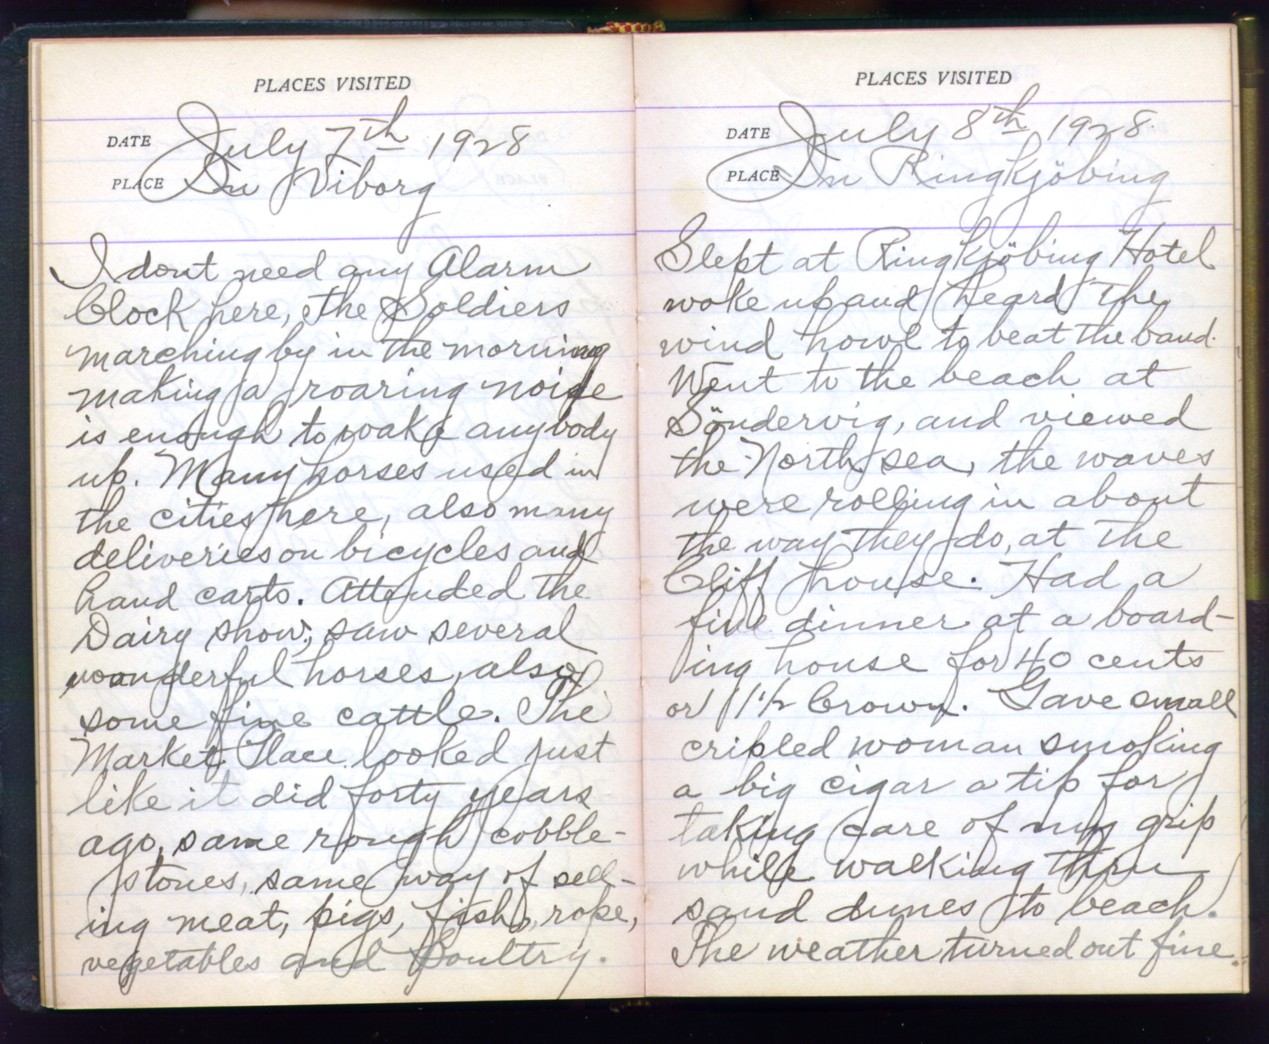 PLACES VISITED
DATE July 7th 1928
PLACE In Viborg
I dont need any Alarm
Clock here, the Soldiers
marching by in the morning
making a roaring noise
is enough to wake anybody
up. Many horses used in
the cities here, also many
deliveries on bicycles and
hand carts. Attended the
Dairy show, saw several
wonderful horses, also
some fine cattle. The
Market Place looked just
like it did forty years
ago, same rough cobble-
stones, same way of sell-
ing meat, pigs, fish, rope,
vegetables and Poultry.
PLACES VISITED
DATE July 8th 1928
PLACE In Ringkjöbing
Slept at Ringkjöbing Hotel
woke up and heard the
wind howl to beat the band.
Went to the beach at
Söndervig, and viewed
the North sea, the waves
were rolling in about
the way they do, at the
Cliff house. Had a
fine dinner at a board-
ing house for 40 cents
or 1 1/2 Crown. Gave small
cripled woman smoking
a big cigar a tip for
taking care of my grip
while walking thru
sand dunes to beach.
The weather turned out fine.